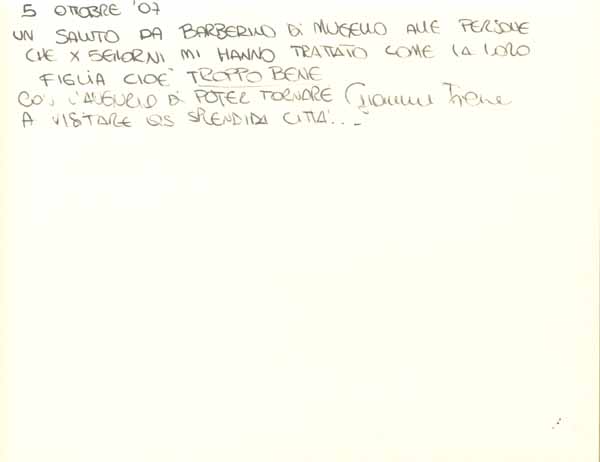 5 OTTOBRE '07
UN SALUTO DA BARBERINO DI MUGELLO ALLE PERSONE
CHE X 5 GIORNI MI HANNO TRATTATO COME LA LORO
FIGLIA CIOE' TROPPO BENE
L'AUGURIO DI POTER TORNARE Irene
A VISITARE QS SPLENDIDA CITTA'...